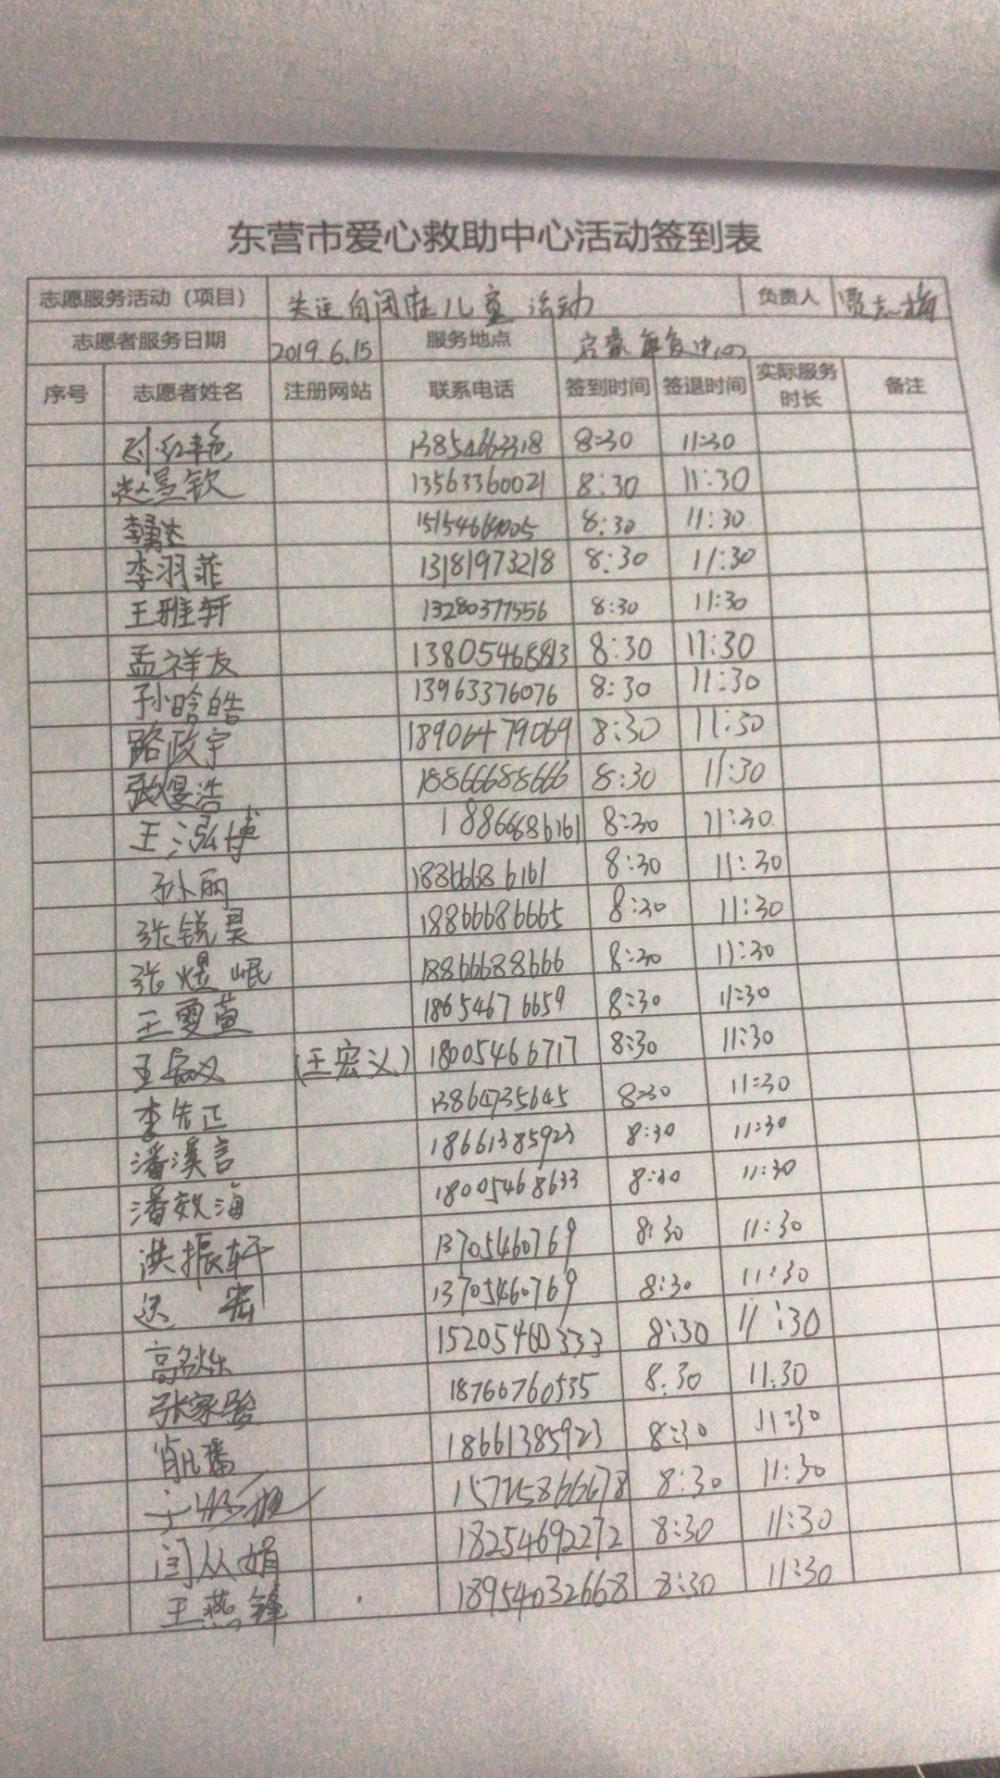 东营市爱心救助中心活动签到表
志愿服务活动（项目） 关注自闭症儿童活动 负责人 贾志梅
志愿者服务日期 2019.6.15 服务地点 启蒙康复中心
序号 志愿者姓名 注册网站 联系电话 签到时间 签退时间 实际服务时长 备注
红艳 13854663318 8:30 11:30
赵昱钦 13563360021 8:30 11:30
8:30 11:30
李羽菲 13181973218 8:30 11:30
王雅轩 13280377556 8:30 11:30
孟祥友 13805468813 8:30 11:30
孙晗皓 13963376076 8:30 11:30
路政宇 18906479069 8:30 11:30
张煜浩 18866688666 8:30 11:30
王泓博 18866686161 8:30 11:30
孙丽 18866686161 8:30 11:30
张锐昊 18866686665 8:30 11:30
张煜岷 18866688666 8:30 11:30
王雯萱 18654676659 8:30 11:30
王宏义 (王宏义) 18005466717 8:30 11:30
李先正 13864735645 8:30 11:30
潘溪言 18661385923 8:30 11:30
潘效海 18005468633 8:30 11:30
洪振轩 13705460769 8:30 11:30
宏 13705460769 8:30 11:30
高 15205460333 8:30 11:30
张家 18766760535 8.30 11.30
18661385923 8:30 11:30
8:30 11:30
闫从娟 18254692272 8:30 11:30
王燕锋 18954032668 8:30 11:30